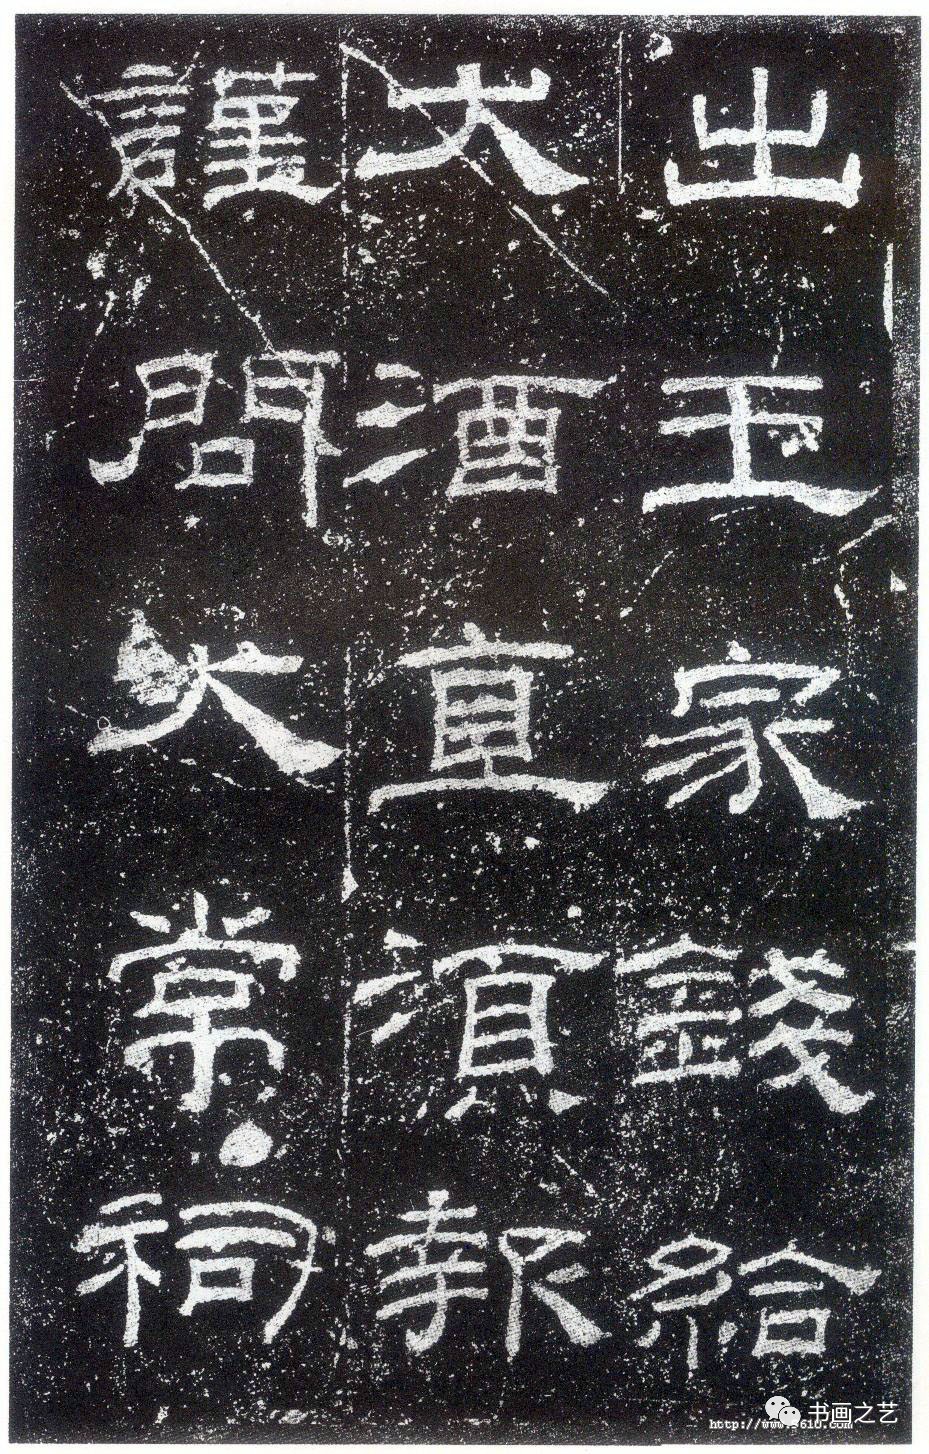 出王家錢給
犬酒直湏報
謹問大常祠
书画之艺
http://www.9610.com